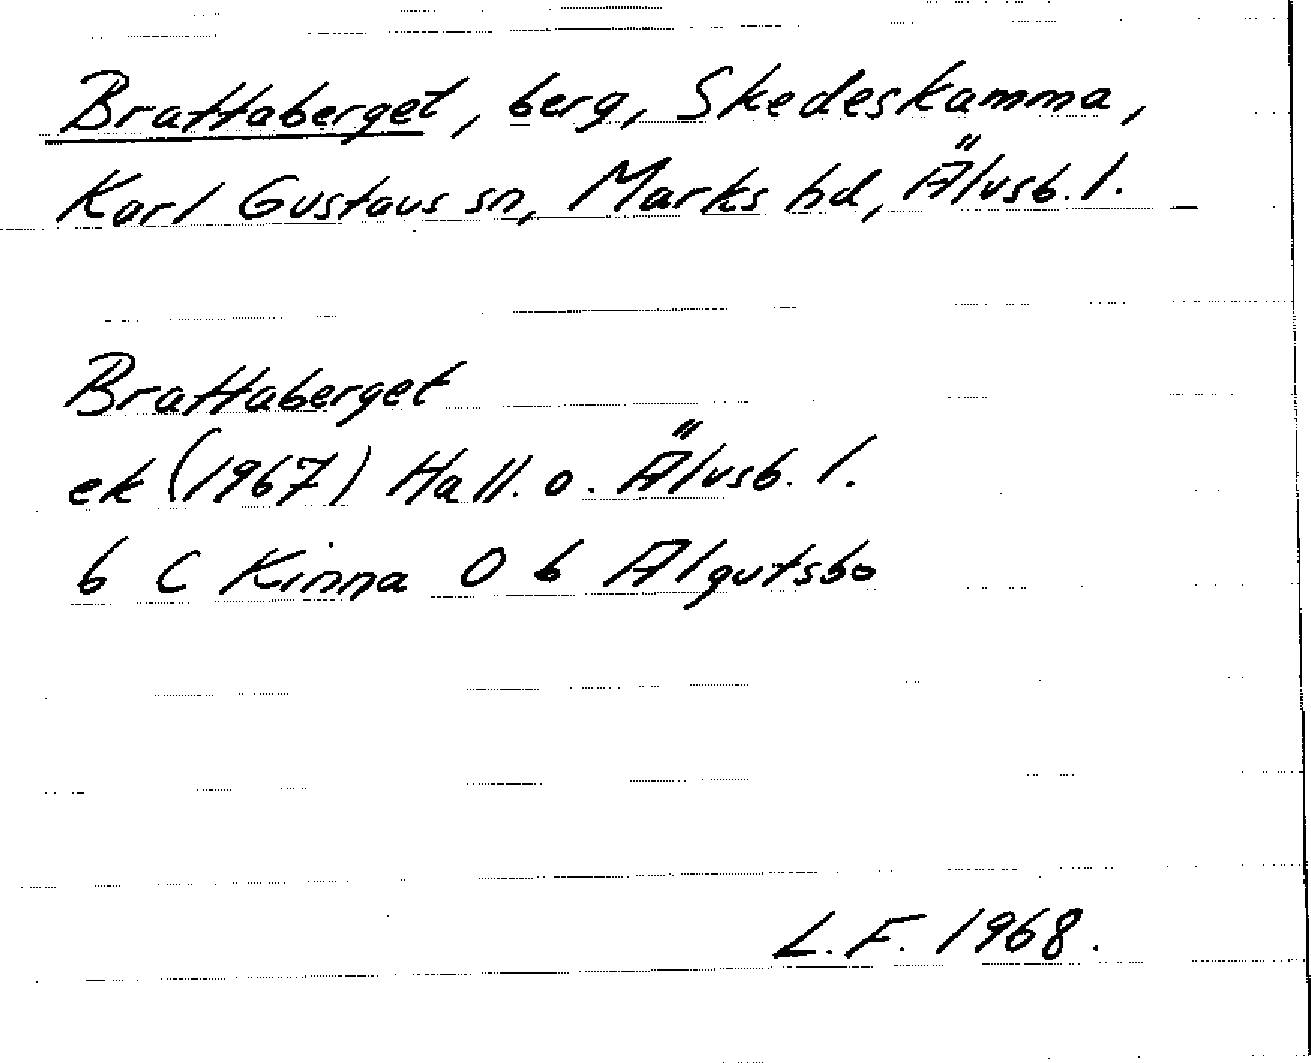 Brattaberget, berg, Skedeskamma,
Karl Gustavs sn, Marks hd, Älvsb. l.
Brattaberget
ek (1967) Hall. o. Älvsb. l.
b C Kinna O b Algutsbo
L.F. 1968.